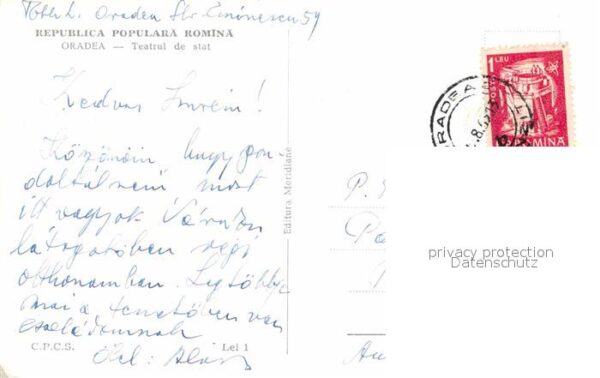 Tóth L. Oradea Str Eminescu 59
REPUBLICA POPULARĂ ROMÎNĂ
ORADEA — Teatrul de stat
Kedves Imrém!
Köszönöm hogy gon
doltál rám most
itt vagyok Váradon
látogatóben régi
otthonamban. Legtöbbje
mai a temetőben van
családomnak
Ölel:
Editura Meridiane
C.P.C.S.
Lei 1
1 LEU
POSTA
ROMÎNA
ORADEA
P.
Pa
Au
privacy protection
Datenschutz